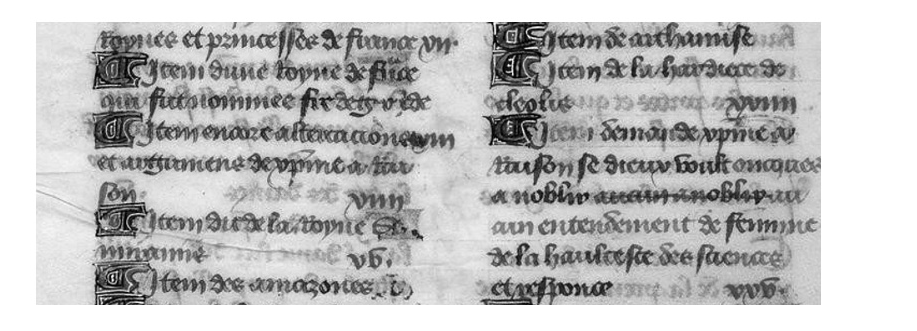 Roynes et princesses de france vii.
Item dune Royne de frāce
qui fut nommee
Item encore altercacions viii
et argumens de xpīne a Rai
son. viiii
Item dit de la Royne
mirannis xv.
Item des amazones
Item de archamise
Item de la hardiece de
cleolis xviiii
Item demande xpīne a
Raison se dieux voult oncques
a noblir aucun anoblir au
cun entendement de femme
de la haultesse des sciences
et responce xxv.